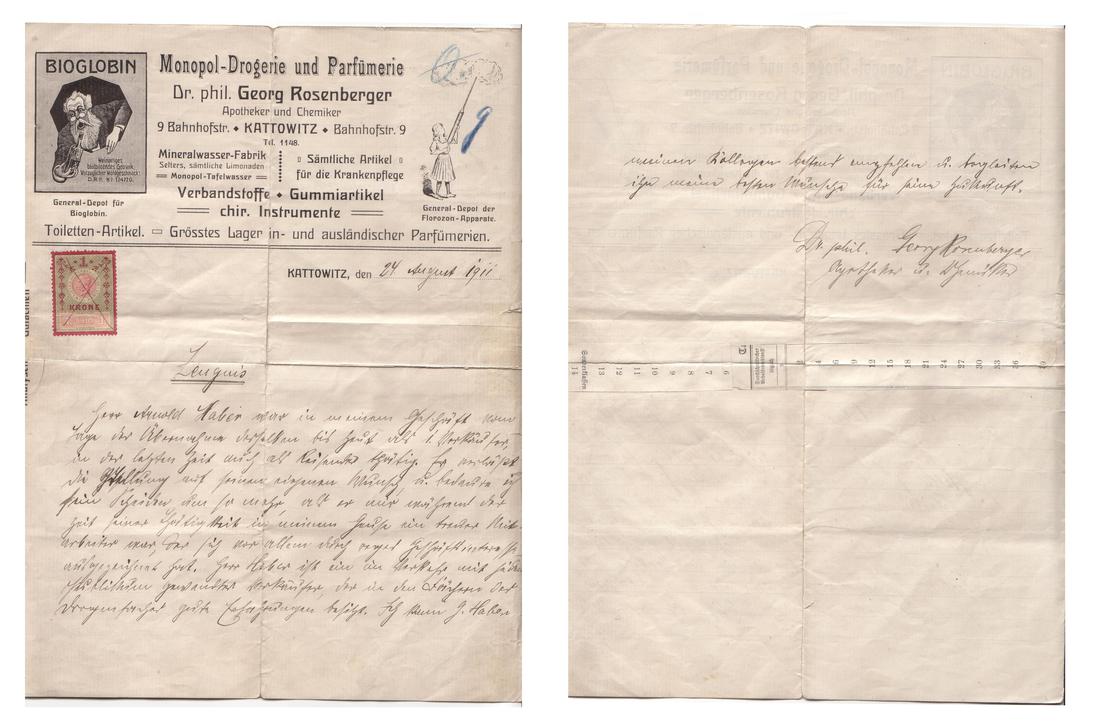 BIOGLOBIN
Weinartiges
blutbildendes Getränk.
Vorzüglicher Wohlgeschmack!
D.R.P. Nº 174770.
General-Depot für
Bioglobin.
Monopol-Drogerie und Parfümerie
Dr. phil. Georg Rosenberger
Apotheker und Chemiker
9 Bahnhofstr. ◆ KATTOWITZ ◆ Bahnhofstr. 9
Tel. 1148.
Mineralwasser-Fabrik
Selters, sämtliche Limonaden
Monopol-Tafelwasser
Sämtliche Artikel
für die Krankenpflege
Verbandstoffe ◆ Gummiartikel
chir. Instrumente
General-Depot der
Florozon-Apparate.
9
Toiletten-Artikel. Grösstes Lager in- und ausländischer Parfümerien.
1
KRONE
KATTOWITZ, den 24 August 1911
Zeugnis
Herr Arnold Haber war in meinem Geschäft vom
Tage der Übernahme desselben bis heut als 1. Verkäufer,
in der letzten Zeit auch als Reisender thätig. Er verläßt
die Stellung auf seinen eigenen Wunsch, u. bedaure ich
sein Scheiden um so mehr, als er mir während der
Zeit seiner Thätigkeit in meinem Hause ein treuer Mit-
arbeiter war, der sich vor allem durch reges Geschäftsinteresse
ausgezeichnet hat. Herr Haber ist ein im Verkehr mit
Publikum gewandter Verkäufer, der in den Fächern der
Drogenfaches gute Erfahrungen besitzt. Ich kann H. Haber
meinen Kollegen bestens empfehlen u. begleiten
ihn meine besten Wünsche für seine Zukunft.
Dr. phil. Georg Rosenberger
Apotheker u. Chemiker
14 13 12 11 10 9 8 6
3 4 6 9 12 15 18 21 24 27 30 33 36